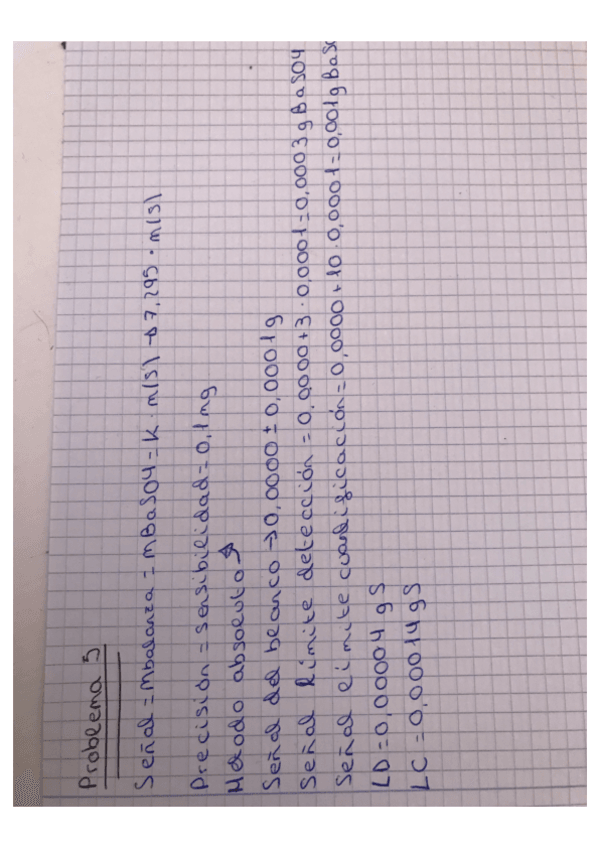 Problema 5
Señal = mbalanza = mBaSO4 = K · m(s) → 7,295 · m(s)
Precisión = sensibilidad = 0,1 mg
Método absoluto
Señal del blanco → 0,0000 ± 0,0001g
Señal límite detección = 0,0000+3·0,0001=0,0003 g BaSO4
Señal límite cuantificación = 0,0000 + 10·0,0001=0,001g BaSO
LD = 0,00004 g S
LC = 0,00014 g S